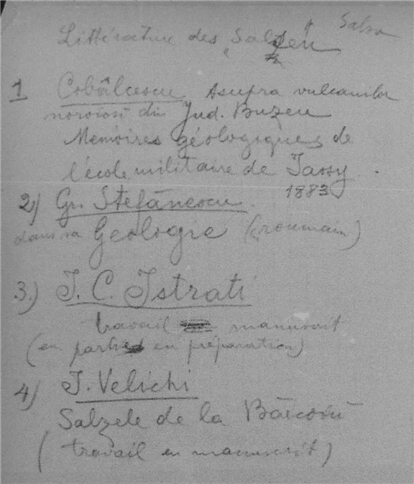 Salsa
Littérature des "Salzen"
1 Cobâlcescu Asupra vulcanilor
noroiosi din Jud. Buzeu
Memoires géologiques de
l'école militaire de Jassy.
1883
2) Gr. Stefănescu.
dans sa Geologie (roumain)
3.) J. C. Istrati
travail manuscrit
(en partie en préparation)
4) J. Velichi
Salzele de la Băicoiŭ
(travail en manuscrit)